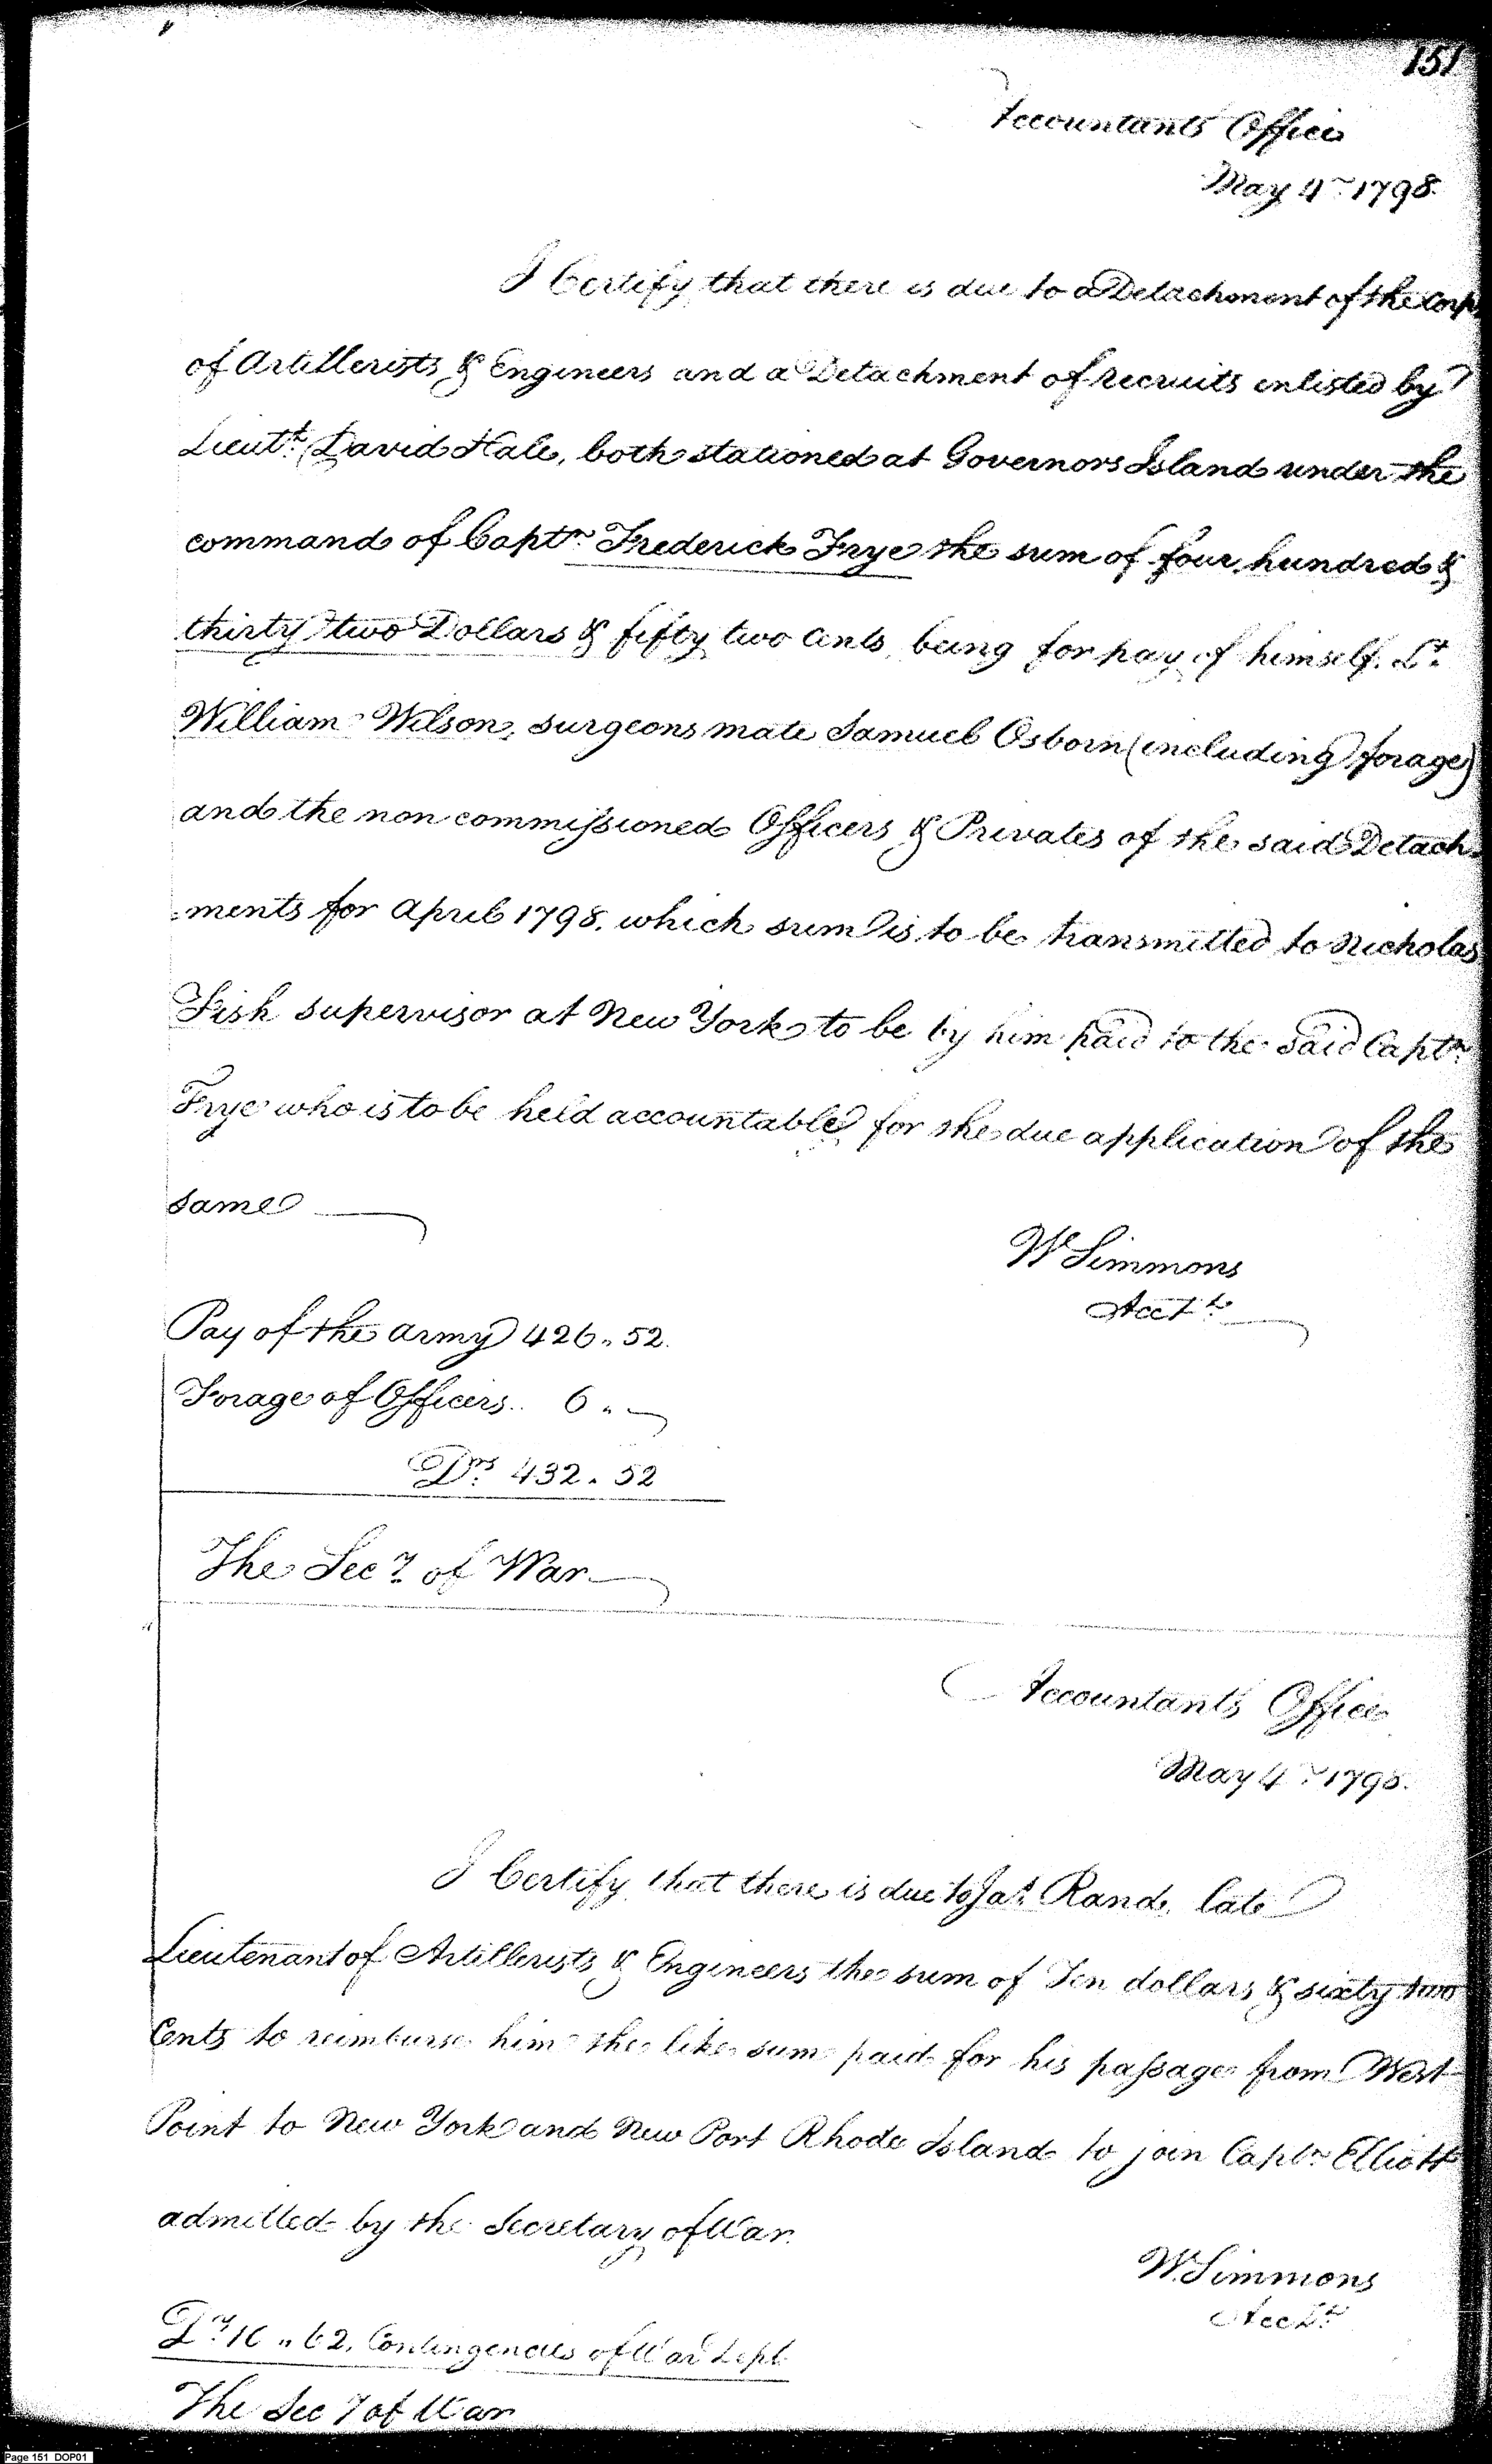 151
Accountants Office
May 4th 1798.
I Certify that there is due to a Detachment of the Corps
of Artillerists & Engineers and a Detachment of recruits enlisted by
Lieutt. David Hale, both stationed at Governors Island under the
command of Captn. Frederick Frye the sum of four hundred &
thirty two Dollars & fifty two Cents, being for pay of himself. Lt.
William Wilson, surgeons mate Samuel Osborn (including forage)
and the non commissioned Officers & Privates of the said Detach-
=ments for April 1798. which sum is to be transmitted to Nicholas
Fish supervisor at New York to be by him paid to the said Captn.
Frye who is to be held accountable for the due application of the
same
W Simmons
Acctt.
Pay of the army 426.. 52.
Forage of Officers.. 6 ..
Drs. 432. 52
The Secy. of War
Accountants Office
May 4th 1798.
I Certify that there is due to Jas. Rand, late
Lieutenant of Artillerists & Engineers the sum of Ten dollars & sixty two
Cents to reimburse him the like sum paid for his passage from West
Point to New York and New Port Rhode Island to join Captn. Elliott
admitted by the Secretary of War.
W. Simmons
Acctt.
Drs. 10 .. 62. Contingencies of War Dept.
The Secy of War
Page 151 DOP01